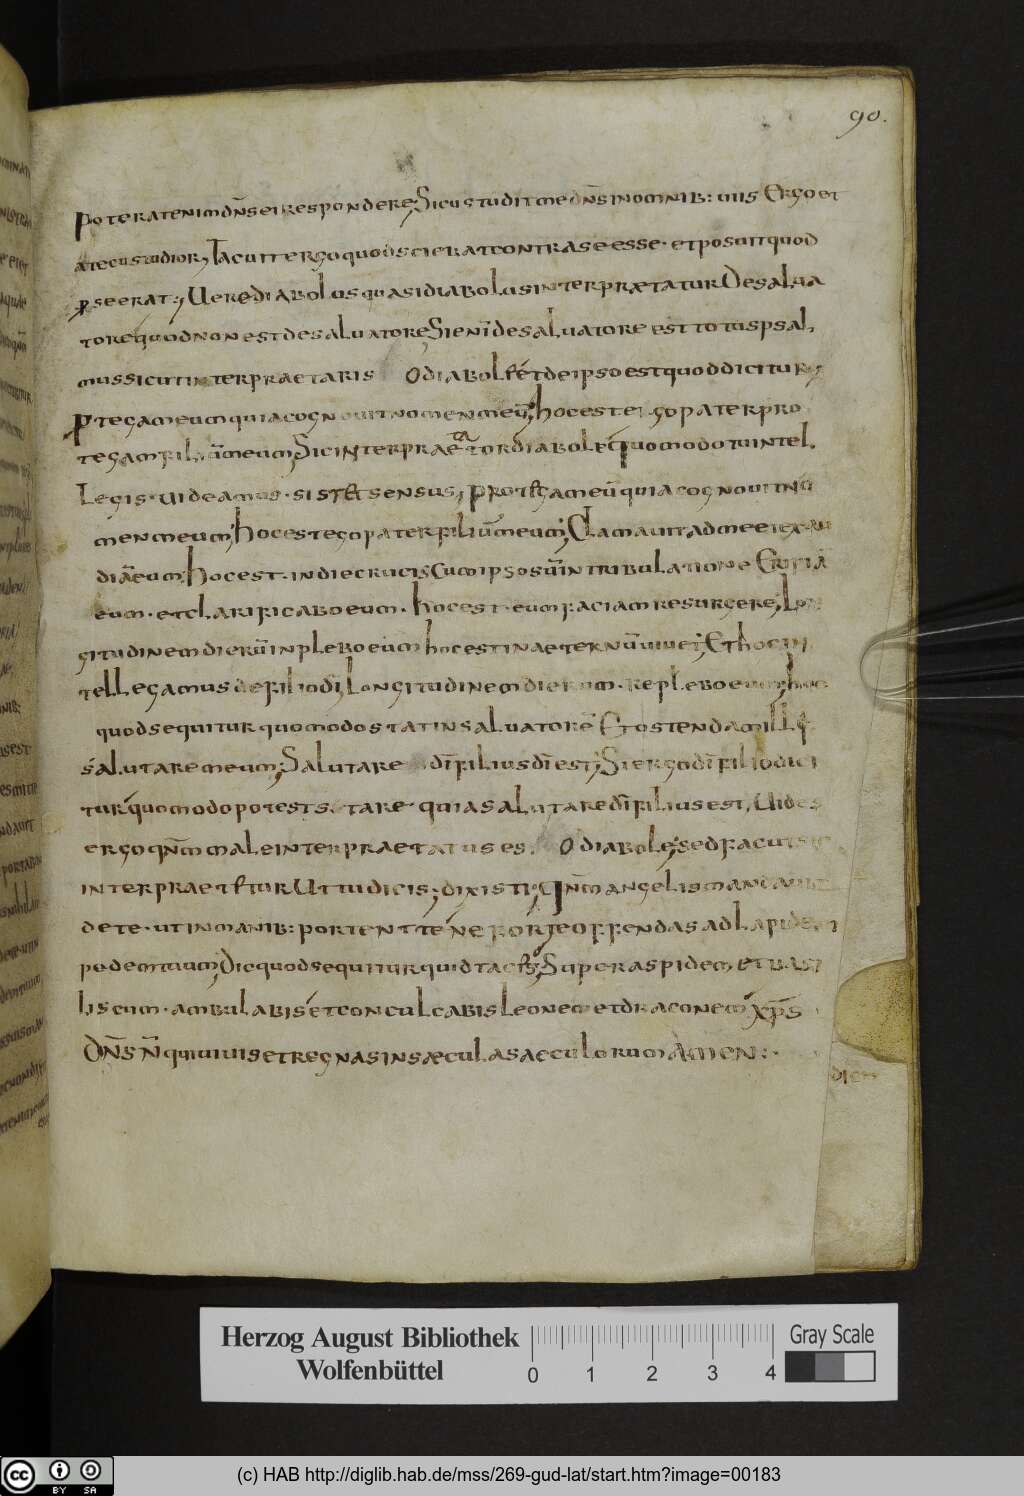 90.
poterat enim dn̄s ei respondere; Si custodit me dn̄s in omnib: uiis Ergo et
a te custodior, Tacuit ergo quod sciebat contra se esse. et posuit quod
ꝑ se erat; Uere diabolus quasi diabolus interprætatur De salua
tore quod non est de saluatore Si enī de saluatore est totus psal,
mus sicut interpraetaris O diabole et de ipso est quod dicitur;
Protegam eum quia cognouit nomen meū; hoc est ego pater pro
tegam filiū meum; Sic interpraetator diabole; Quomodo tu intel,
legis. uideamus. si stet sensus, Protegam eū quia cognouit no
men meum; hoc est ego pater filiū meum; Clamauit ad me et exau
diā eum; hoc est. in die crucis Cum ipso sū in tribulatione Eripiā
eum. et clarificabo eum. hoc est. eum faciam resurgere, Lon
gitudinem dierū inplebo eum hoc est in aeternū uiuet; Et hoc in
tellegamus de filio dī; Longitudinem dierum. replebo eum; hoc
quod sequitur quomodo stat in saluatorē Et ostendam illi
salutare meum; Salutare dī filius dī est; Si ergo dī filio dici
tur quomodo potest stare quia salutare dī filius est, Uides
ergo qn̄m male interpraetatus es. O diabole; sed facut
interpraetetur Ut tu dicis; dixisti; Qn̄m angelis mandauit
de te. ut in manib: portent te ne forte offendas ad lapidem
pedem tuum; Dic quod sequitur quid taces; Super aspidem et basi
liscum. ambulabis et conculcabis leonem et draconem x̄p̄s
Dn̄s n̄ qui uiuis et regnas in sæcula saeculorum AMEN:.
dicit
Herzog August Bibliothek
Wolfenbüttel
0 1 2 3 4
Gray Scale
cc BY SA
(c) HAB http://diglib.hab.de/mss/269-gud-lat/start.htm?image=00183